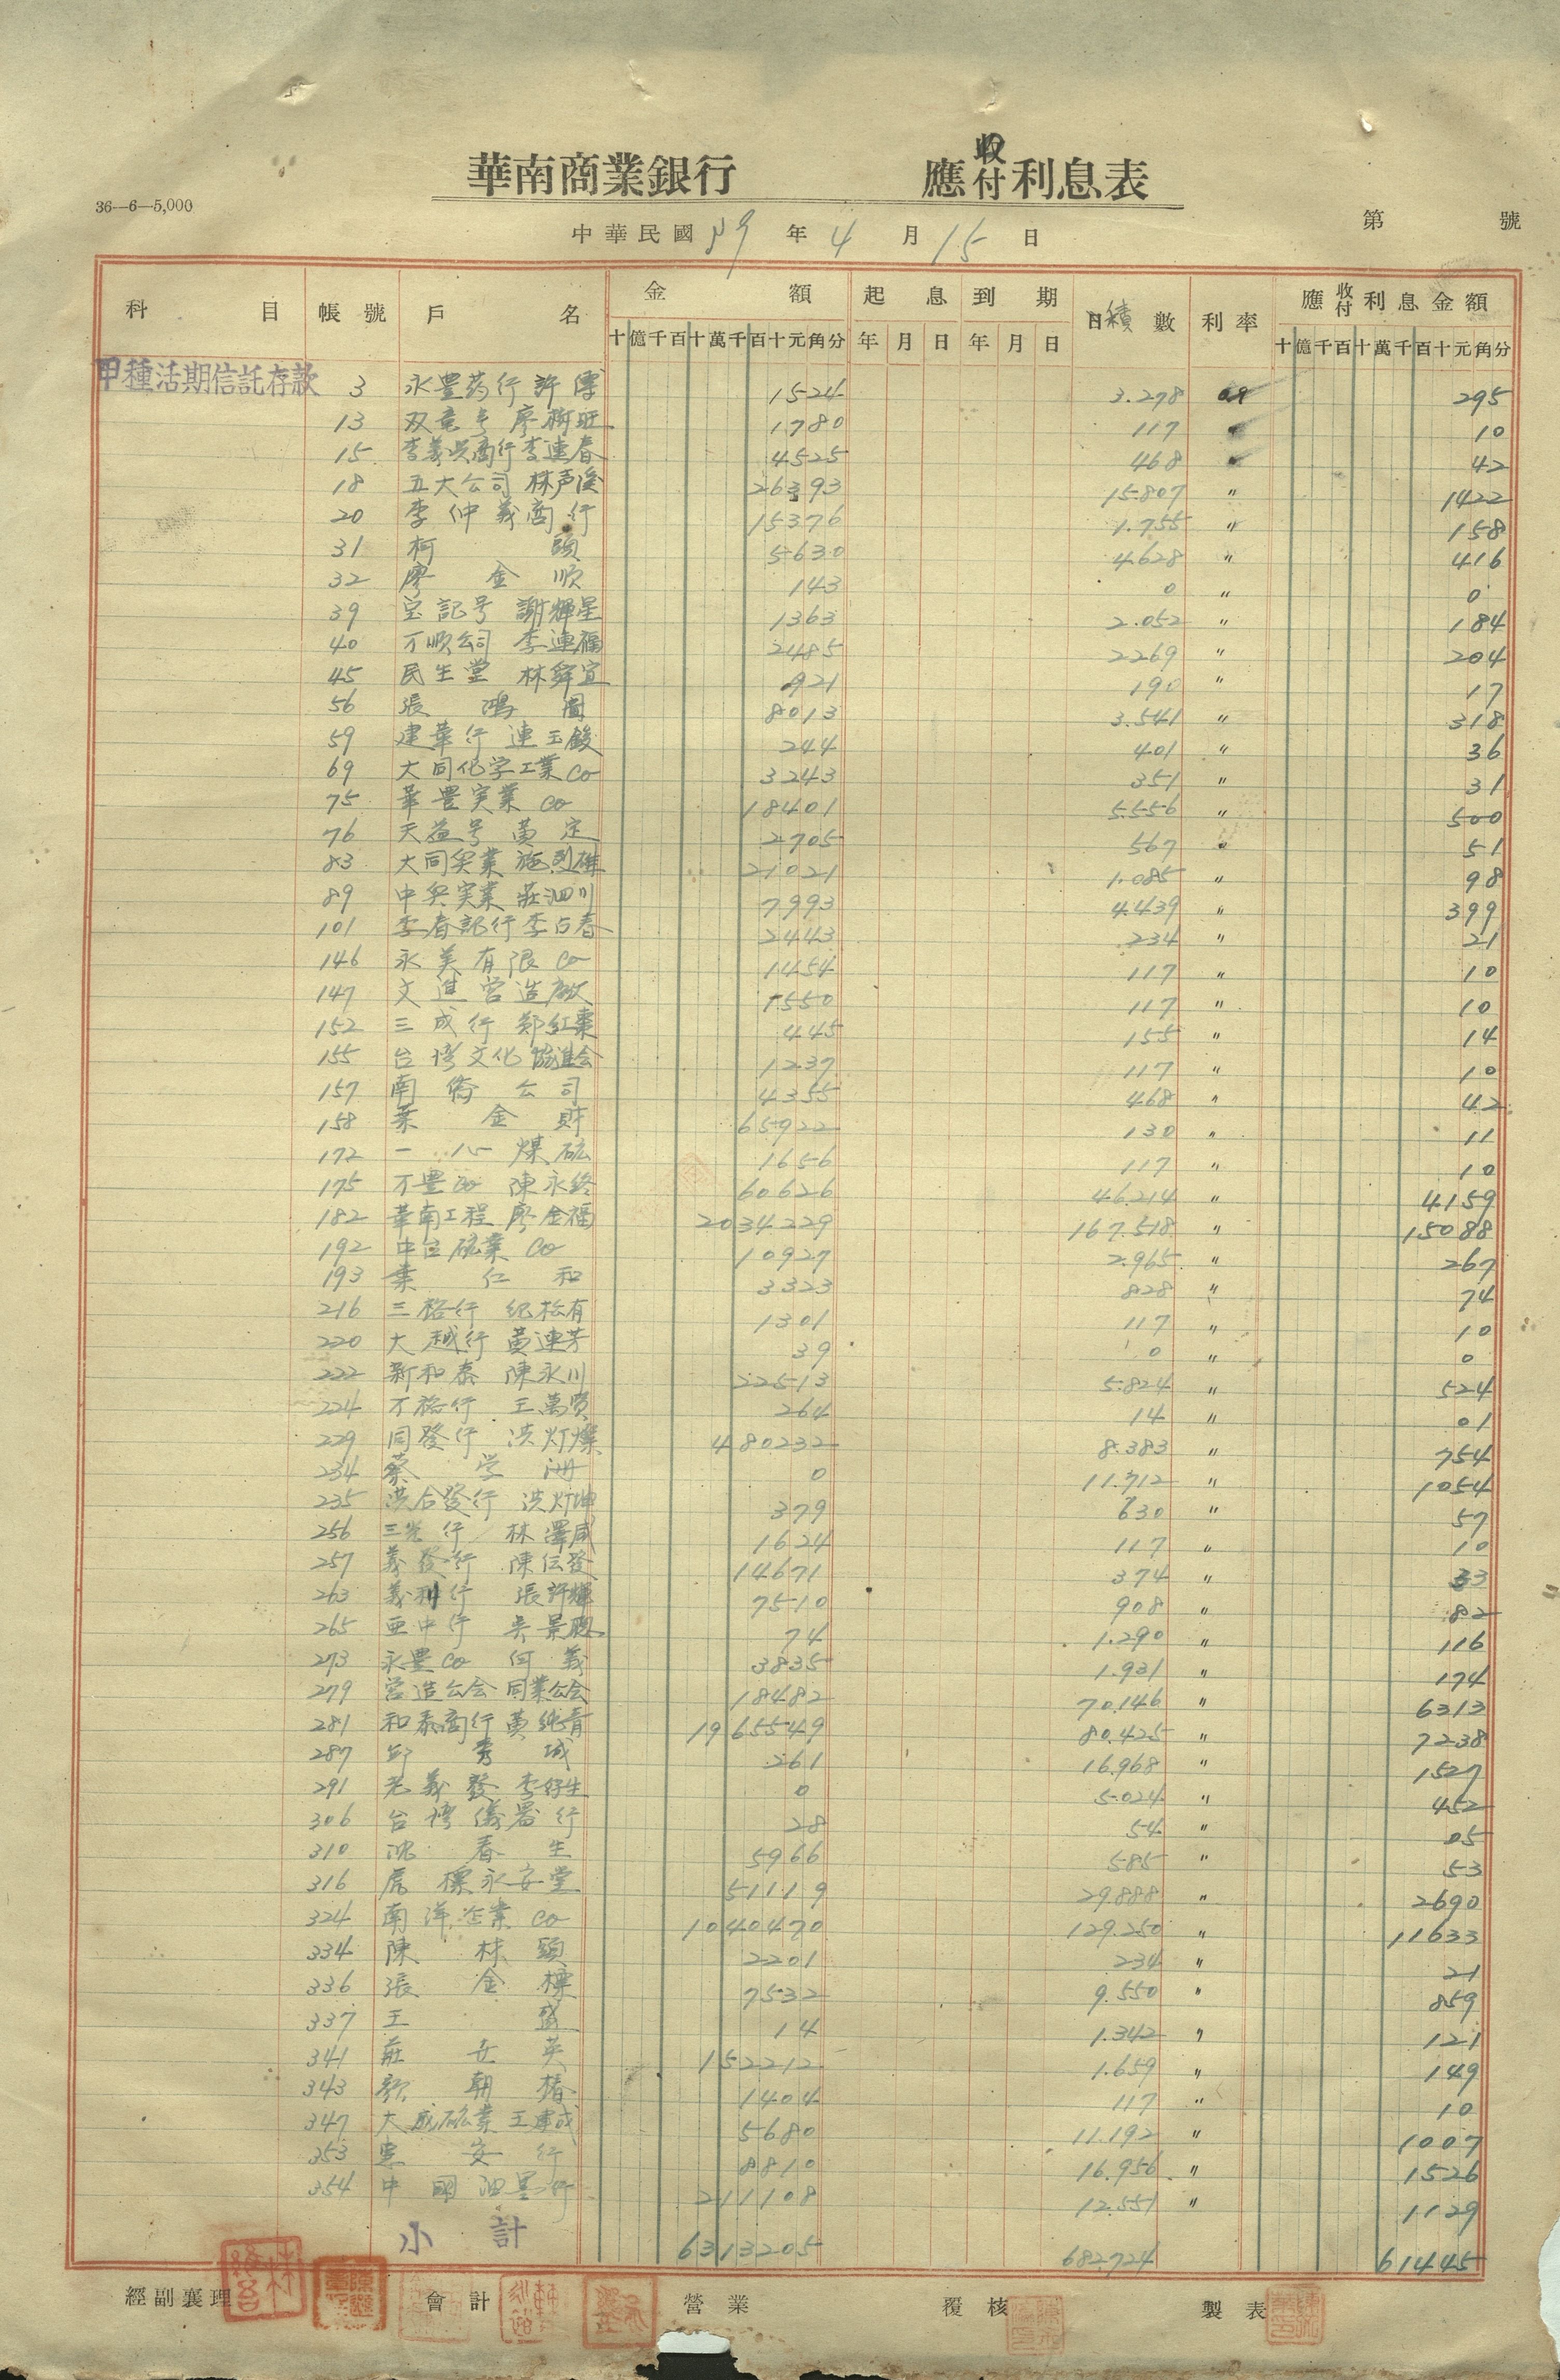 華南商業銀行 應收付利息表
36—6—5,000
中華民國39年4月15日
第 號
科目 帳號 戶名 金額 起息 到期 日積數 利率 應收付利息金額
十億千百十萬千百十元角分 年月日 年月日 十億千百十萬千百十元角分
甲種活期信託存款 3 永豊药行 許 1524 3.278 09 295
13 双竜号 廖 1780 117 〃 10
15 李義興商行 李連春 4525 468 〃 42
18 五大公司 林声浚 26393 15.807 〃 1422
20 李仲義商行 15376 1.755 〃 158
31 柯 頭 5630 4.628 〃 416
32 廖金順 143 0 〃 0
39 宝記号 謝輝星 1363 2.052 〃 184
40 万順公司 李連福 2485 2269 〃 204
45 民生堂 林舜宣 921 190 〃 17
56 張鴻圖 8013 3.541 〃 318
59 建華行 連玉 244 401 〃 36
69 大同化学工業Co 3243 351 〃 31
75 華豊実業Co 18401 5.556 〃 500
76 天益号 黃定 2705 567 〃 51
83 大同実業 施 21021 1.085 〃 98
89 中興実業 莊泗川 7993 4.439 〃 399
101 李春記行 李占春 2443 234 〃 21
146 永美有限Co 1454 117 〃 10
147 文進営造廠 1550 117 〃 10
152 三成行 鄭紅棗 445 155 〃 14
155 台湾文化協進会 1237 117 〃 10
157 南僑公司 4355 468 〃 42
158 葉金財 65922 130 〃 11
172 一心煤砿 1656 117 〃 10
175 万豊Co 陳永 60626 46.214 〃 4159
182 華南工程 廖金福 2034229 167.518 〃 15088
192 中 砿業Co 10927 2.965 〃 267
193 葉仁和 3323 828 〃 74
216 三裕行 紀松有 1301 117 〃 10
220 大越行 黃連芳 39 0 〃 0
222 新和泰 陳永川 22513 5.824 〃 524
224 万裕行 王萬 264 14 〃 01
229 同發行 洪灯燦 480232 8.383 〃 754
234 蔡学洲 0 11.712 〃 1054
235 洪合發行 洪灯坤 379 630 〃 57
256 三光行 林澤咸 1624 117 〃 10
257 義發行 陳伝發 14671 374 〃 33
263 義利行 張許輝 7510 908 〃 82
265 亜中行 吳景聰 74 1.290 〃 116
273 永豊Co 何義 3835 1.931 〃 174
279 営造公会 同業公会 18482 70.146 〃 6313
281 和泰商行 黃純青 1965549 80.425 〃 7238
287 邱秀城 261 16.968 〃 1527
291 老義發 李好生 0 5.024 〃 452
306 台湾儀器行 28 54 〃 05
310 沈春生 5966 585 〃 53
316 虎標永安堂 51119 29.888 〃 2690
324 南洋企業Co 1040470 129.250 〃 11633
334 陳林頭 2201 234 〃 21
336 張金標 7532 9.550 〃 859
337 王 盛 14 1.342 〃 121
341 莊 英 152212 1.659 〃 149
343 朝椿 1404 117 〃 10
347 大成砿業 王 成 5680 11.192 〃 1007
353 安行 8810 16.956 〃 1526
354 中國 行 211108 12.551 〃 1129
小計 6313205 682.724 61445
經副襄理 會計 營業 覆核 製表